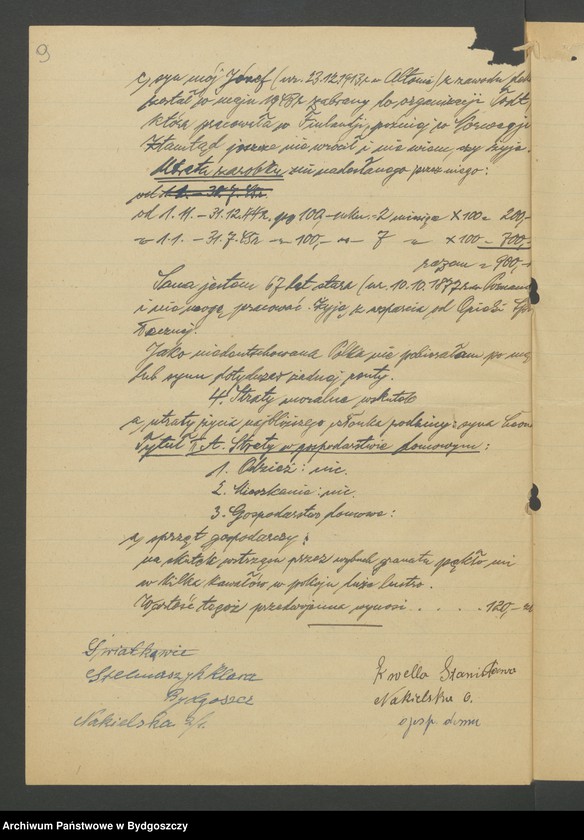 9
c, syn mój Józef (ur. 23.12.1913r. w Altonie) z zawodu
został w maju 1943r zabrany do organizacji Todt,
która pracowała w Finlandji, później w Norwegji
Stamtąd jeszcze nie wrócił i nie wiem, czy żyje.
Utrata zarobku nie nadesłanego przez niego:
od 1.11. - 31.12.44r. po 100,- = 2 miesiące x 100 = 200,-
" 1.1. - 31.7.45r " 100,- " 7 " x 100 - 700,-
razem = 900,-
Sama jestem 67 lat stara (ur. 10.10.1877r. w
i nie mogę pracować. Żyję z wsparcia od Opieki
łecznej.
Jako niedeutschowana Polka nie pobierałam po
lub synu dotychczas żadnej renty.
4. Straty moralne wskutek
a, utraty życia najbliższego członka rodziny: syna
Tytuł II A. Straty w gospodarstwie domowym:
1. Odzież: nic.
2. Mieszkanie: nic.
3. Gospodarstwo domowe:
a, sprzęt gospodarczy:
na skutek wstrząsu przez wybuch granatu pękło mi
w kilka kawałków w pokoju duże lustro.
Wartość tegoż przedwojenna wynosi . . . . . 120,-
Świadkowie
Stelmaszyk Klara
Bydgoszcz
Nakielska
Stanisława
Nakielska 6.
gosp. domu
Archiwum Państwowe w Bydgoszczy